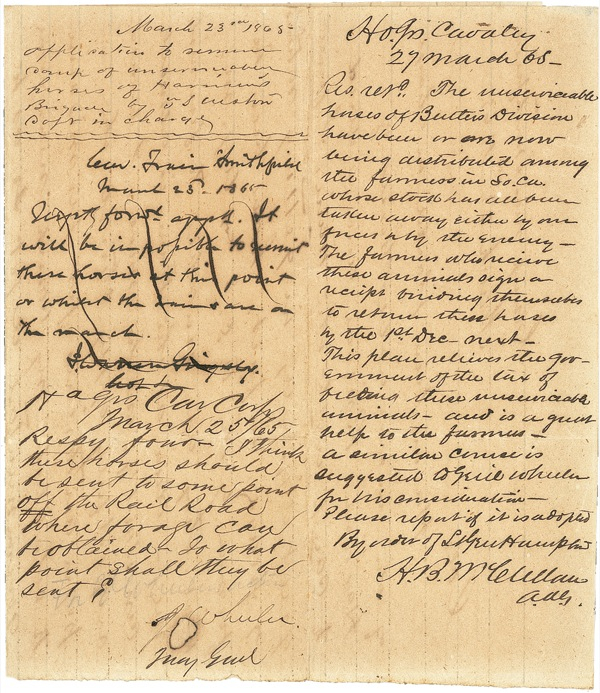 March 23rd 1865
application to
camp of unserviceable
horses of Harrison's
Brigade by
Capt in charge
Cav. Train Smithfield
March 25th 1865
forwd. appd. It
will be impossible to recruit
these horses at this point
or whilst the trains are on
the march.
Hdqrs Cav Corps
March 25th 65
Respy forwd I think
these horses should
be sent to some point
off the Rail Road
where forage can
be obtained - To what
point shall they be
sent?
J Wheeler
Maj Genl
Hd.qrs. Cavalry
27 March 65-
Res. retd. The unserviceable
horses of Butler's Division
have been or are now
being distributed among
the farmers in So. Ca.
whose stock has all been
taken away either by our
forces or by the enemy-
The farmers who receive
these animals sign a
receipt binding themselves
to return these horses
by the 1st Dec next-
This plan relieves the gov-
ernment of the tax of
feeding these unserviceable
animals - and is a great
help to the farmers-
a similar course is
suggested to Genl Wheeler
for his consideration-
Please report if it is adopted
By order of Lt Gen Hampton
H. B. McClellan
A.A.G.